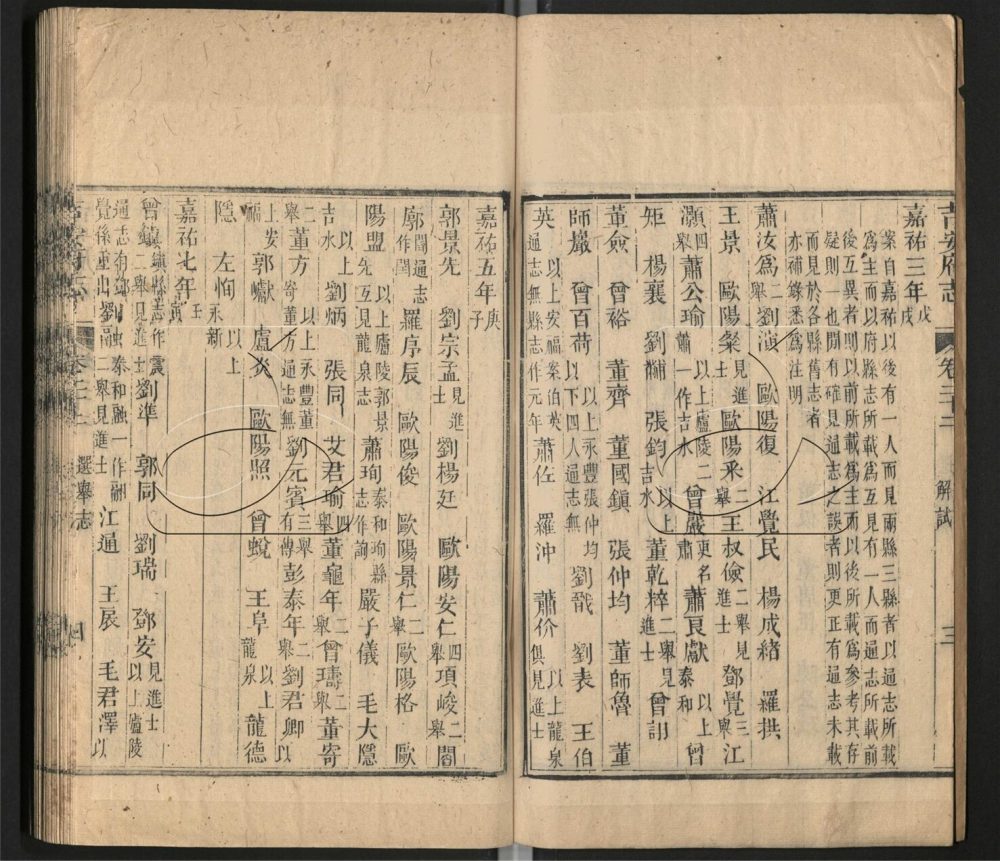 吉安府志 卷二十二 解試 三
嘉祐三年戊戌
案自嘉祐以後有一人而見兩縣三縣者以通志所載
爲主而以府縣志所載爲互見有一人而通志所載前
後互異者則以前所載爲主而以後所載爲參考其存
疑則一也間有確見通志之誤者則更正有通志未載
而見於各縣舊志者
亦補錄悉爲注明
蕭汝爲二舉 劉滇 歐陽復 江覺民 楊成緒 羅拱
王景 歐陽粲見進士 歐陽釆二舉 王叔儉二舉見進士 鄧覺三舉 江
灝四舉 蕭公瑜蕭一作 以上廬陵二 吉水 曾嚴更名肅 蕭良獻 以上泰和 曾
矩 楊襄 劉黼 張鈞 以上吉水 董乾粹二舉見進士 曾訢
董僉 曾裕 董齊 董國鎮 張仲均 董師魯 董
師巖 曾百蒔 以上永豐張仲均以下四人通志無 劉戩 劉表 王伯
英 以上安福案伯英通志無縣志作元年 蕭佐 羅沖 蕭价 以上龍泉俱見進士
嘉祐五年庚子
郭景先 劉宗孟見進士 劉楊廷 歐陽安仁四舉 項峻二舉 閻
廓閻通志作閏 羅序辰 歐陽俊 歐陽景仁二舉 歐陽格 歐
陽盟 以上廬陵郭景先互見龍泉志 蕭珣泰和珣縣志作詢 嚴子儀 毛大隱
以上吉水 劉炳 張同 艾君瑜四舉 董龜年二舉 曾璹二舉 董寄
二舉 董方 以上永豐董寄董方通志無 劉元賓三舉有傳 彭泰年二舉 劉君卿 以
上安福 郭巘 盧炎 歐陽照 曾蛻 王阜 以上龍泉 龍德
隱 左恂 以上永新
嘉祐七年壬寅
曾鎮鎮縣志作震二舉見進士 劉準 郭同 劉瑞 鄧安見進士以上廬陵
江通 王扆 毛君澤 以
選舉志